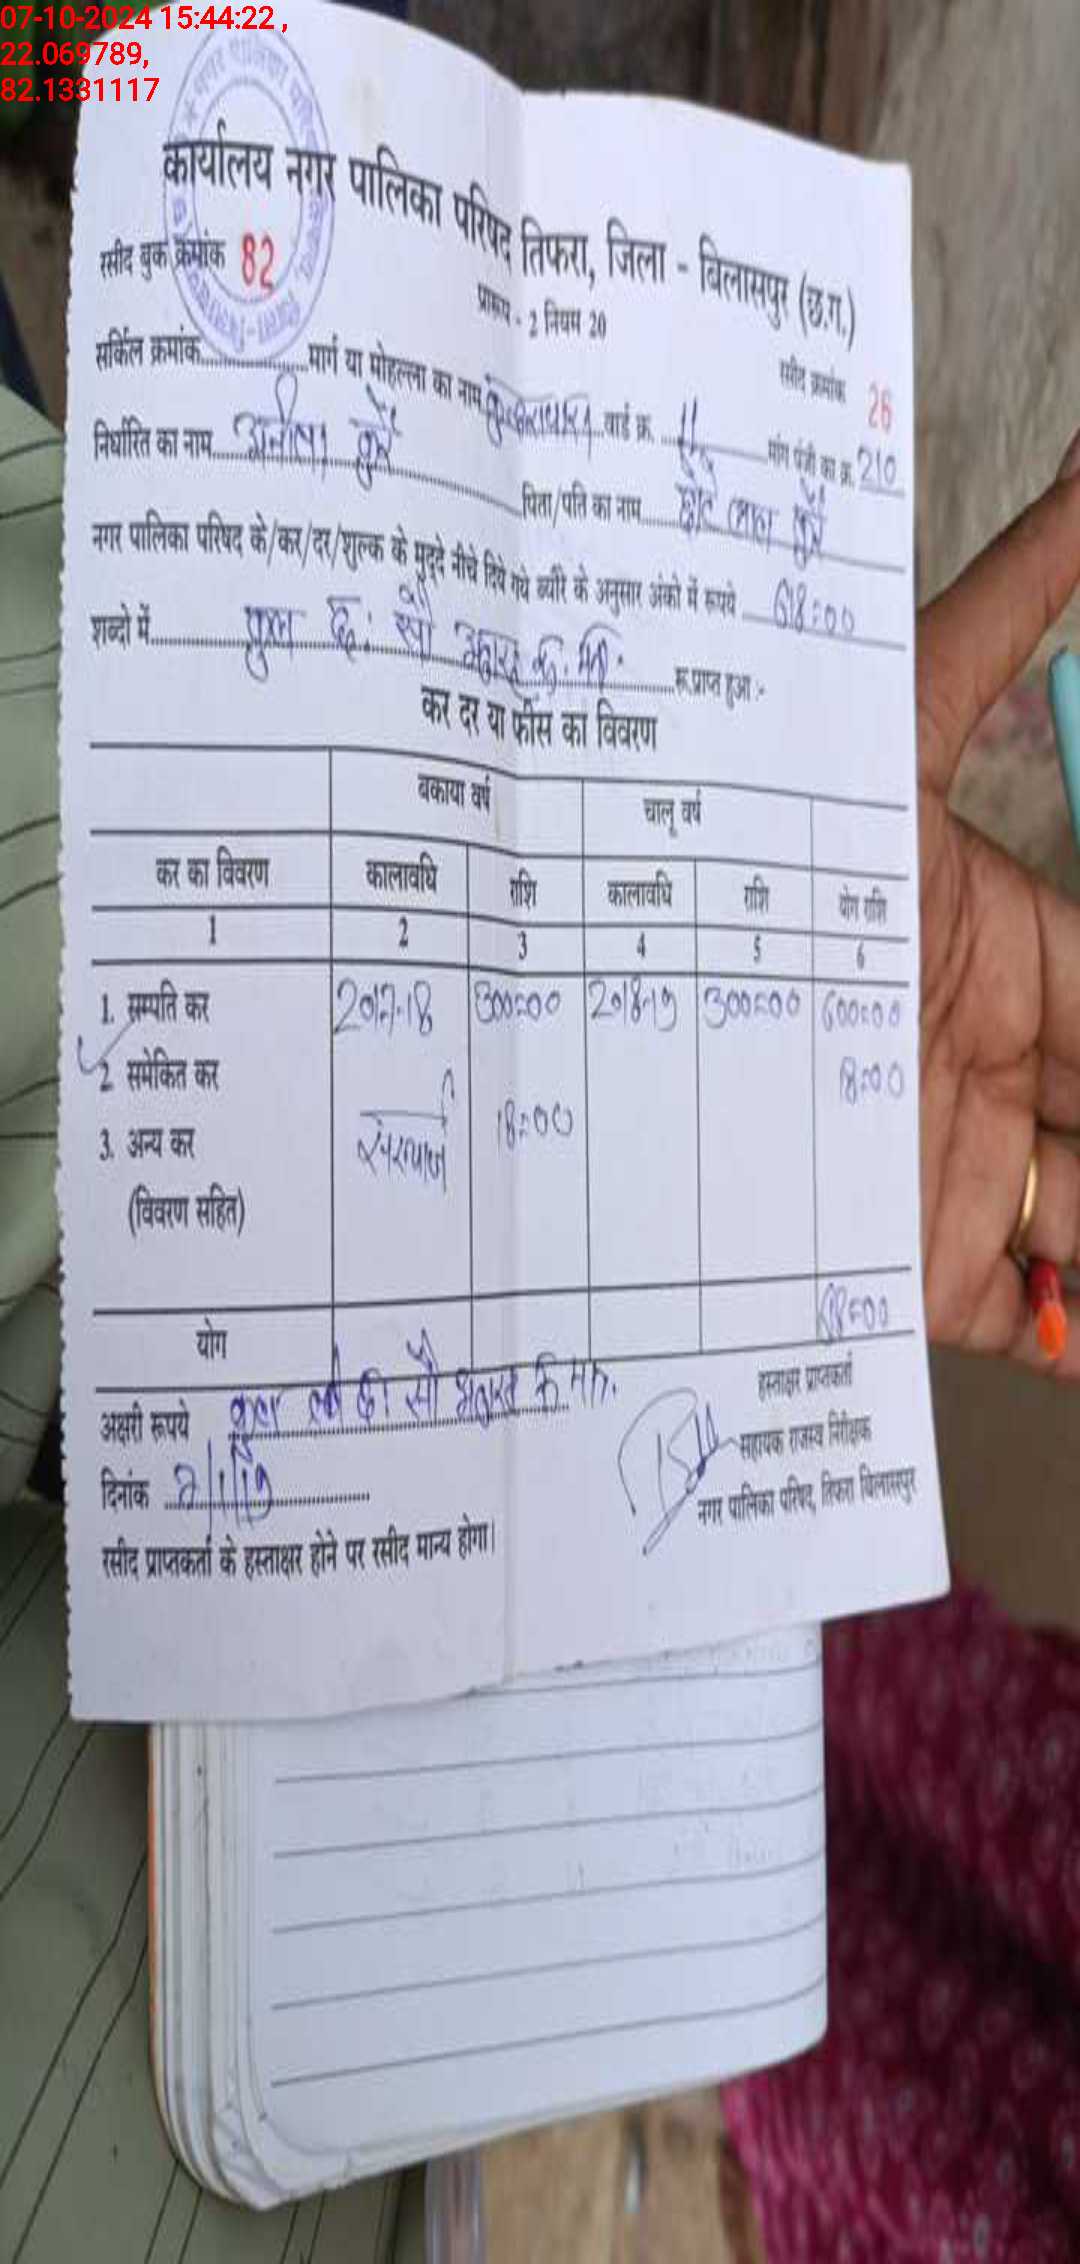 07-10-2024 15:44:22 ,
22.069789,
82.1331117
कार्यालय नगर पालिका परिषद तिफरा, जिला - बिलासपुर (छ.ग.)
रसीद बुक क्रमांक 82
प्रारूप - 2 नियम 20
रसीद क्रमांक 26
सर्किल क्रमांक मार्ग या मोहल्ला का नाम वार्ड क्र. 11 मांग पंजी का क्र. 210
निर्धारित का नाम कुर्रे पिता/पति का नाम छोटे लाल कुर्रे
नगर पालिका परिषद के/कर/दर/शुल्क के मुद्दे नीचे दिये गये ब्यौरे के अनुसार अंको में रूपये 618=00
शब्दो में कुल छ: सौ रू.प्राप्त हुआ :-
कर दर या फीस का विवरण
बकाया वर्ष चालू वर्ष
कर का विवरण कालावधि राशि कालावधि राशि योग राशि
1 2 3 4 5 6
1. सम्पति कर 2017-18 300=00 2018-19 300=00 600=00
2. समेकित कर 18=00
3. अन्य कर 18=00
(विवरण सहित)
योग 618=00
अक्षरी रूपये कुल सौ
हस्ताक्षर प्राप्तकर्ता
दिनांक
सहायक राजस्व निरीक्षक
नगर पालिका परिषद, तिफरा बिलासपुर
रसीद प्राप्तकर्ता के हस्ताक्षर होने पर रसीद मान्य होगा।